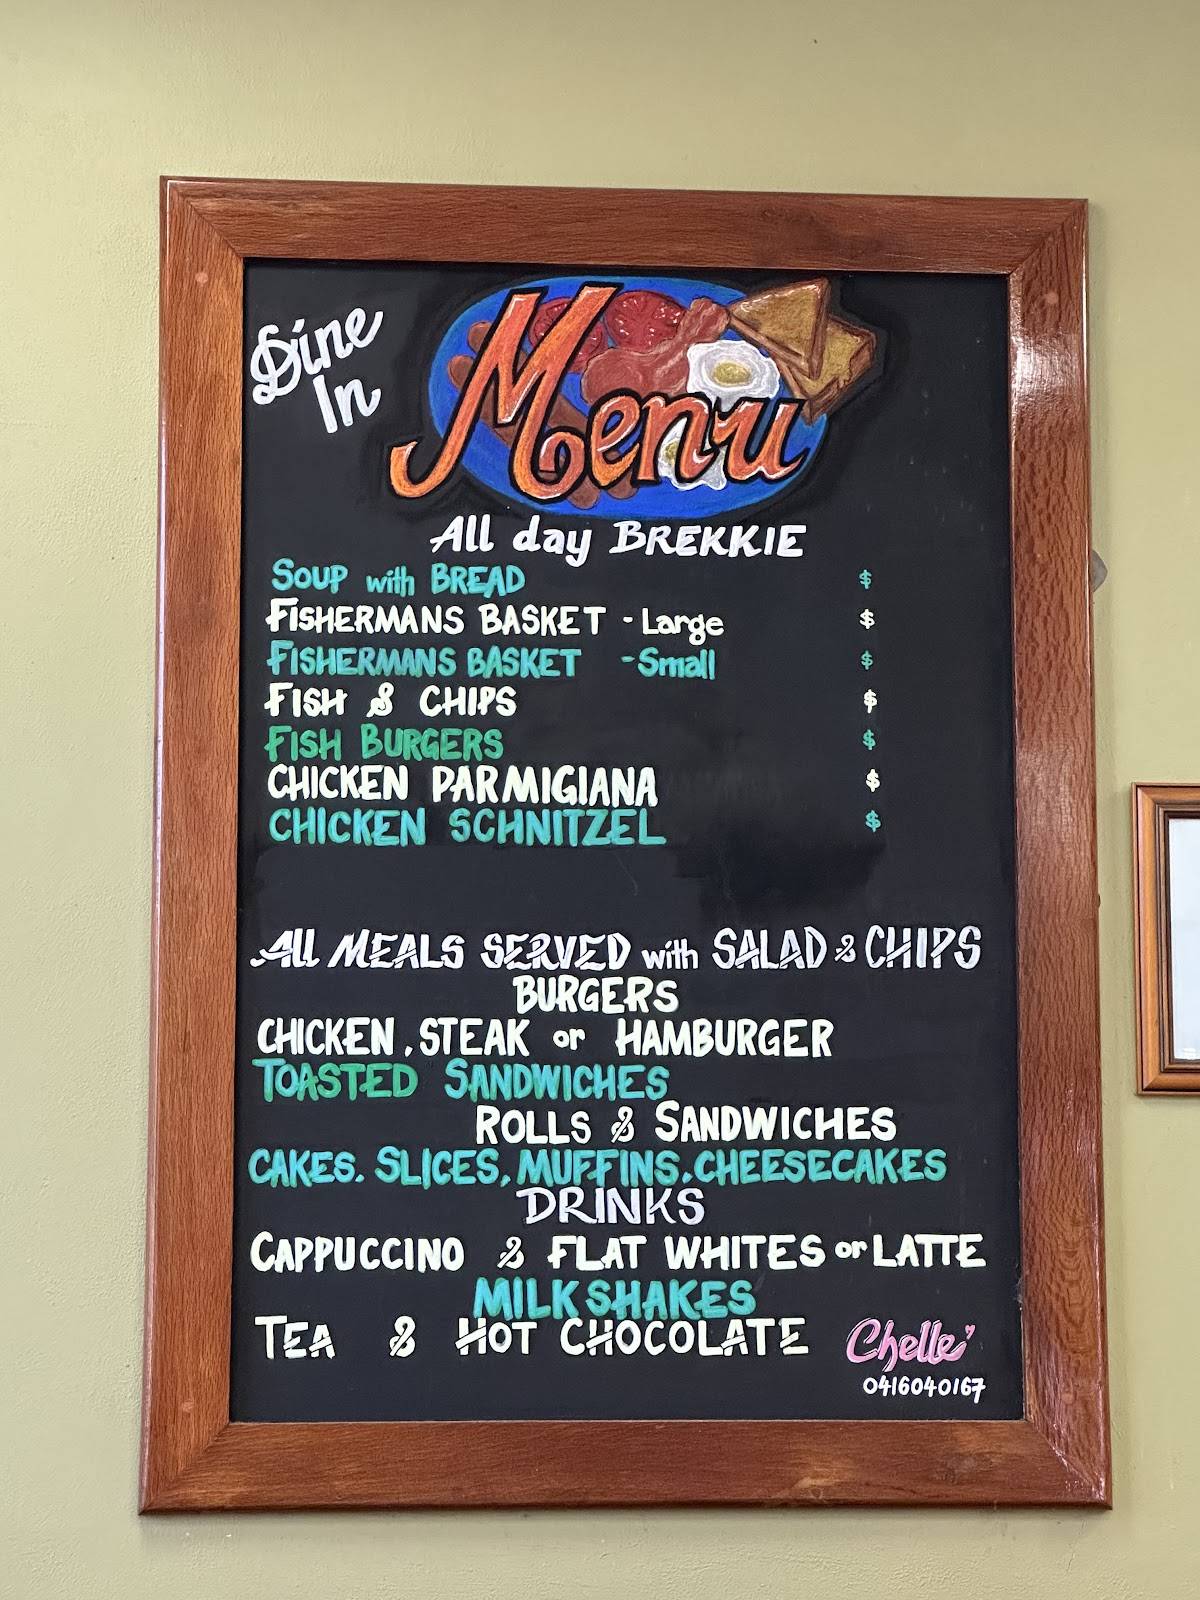 Dine
In
Menu
All day BREKKIE
SOUP with BREAD $
FISHERMANS BASKET - Large $
FISHERMANS BASKET - Small $
FISH & CHIPS $
FISH BURGERS $
CHICKEN PARMIGIANA $
CHICKEN SCHNITZEL $
All MEALS SERVED with SALAD & CHIPS
BURGERS
CHICKEN, STEAK or HAMBURGER
TOASTED SANDWICHES
ROLLS & SANDWICHES
CAKES. SLICES, MUFFINS. CHEESECAKES
DRINKS
CAPPUCCINO & FLAT WHITES or LATTE
MILKSHAKES
TEA & HOT CHOCOLATE
Chelle
0416040167